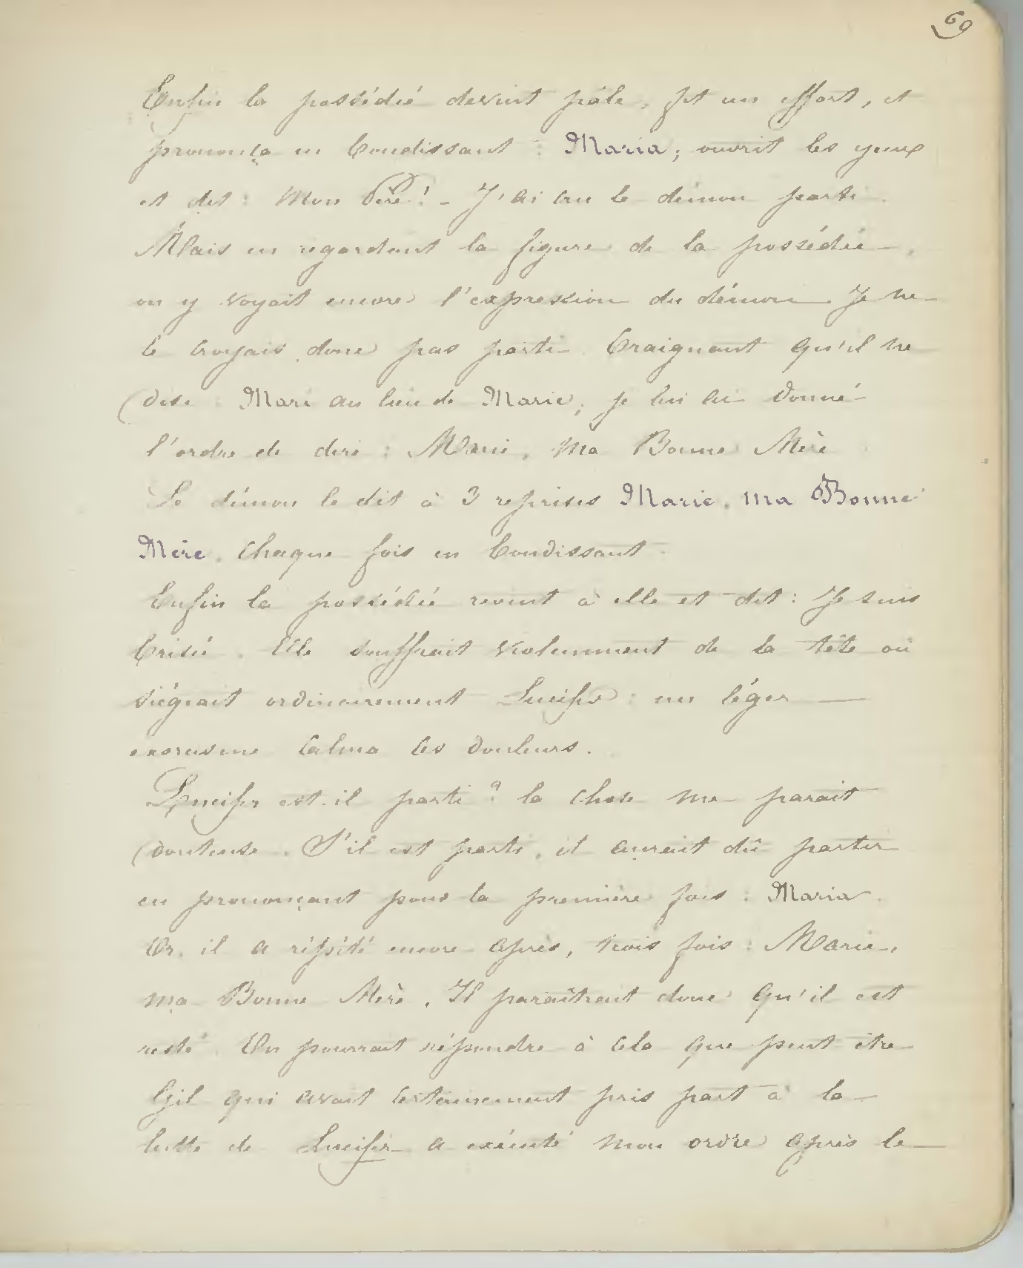 69
Enfin la possédée devint pâle, fit un effort, et
prononça en bondissant : Maria; ouvrit les yeux
et dit : Mon Père! - J'ai cru le démon parti.
Mais en regardant la figure de la possédée,
on y voyait encore l'expression du démon. Je ne
le croyais donc pas parti. Craignant qu'il ne
dise : Mari au lieu de Marie; je lui ai donné
l'ordre de dire : Marie, ma Bonne Mère
Le démon le dit à 3 reprises Marie, ma Bonne
Mère, chaque fois en bondissant.
Enfin la possédée revint à elle et dit : Je suis
brisée. Elle souffrait violemment de la tête où
siégeait ordinairement Lucifer : un léger
exorcisme calma les douleurs.
Lucifer est-il parti? la chose me parait
douteuse. S'il est parti, il aurait dû partir
en prononçant pour la première fois : Maria.
Or, il a répété encore après, trois fois : Marie,
ma Bonne Mère. Il paraîtrait donc qu'il est
resté. On pourrait répondre à cela que peut être
Gil qui avait certainement pris part à la
lutte de Lucifer a exécuté mon ordre après le